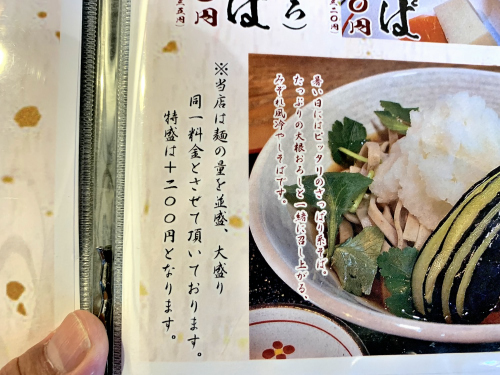 ば
０円
二〇円）
ろ）
ば
円
五円）
暑い日にはピッタリのさっぱり系そば。
たっぷりの大根おろしと一緒に召し上がる、
みぞれ風冷やしそばです。
※当店は麺の量を並盛、大盛り
同一料金とさせて頂いております。
特盛は＋二００円となります。